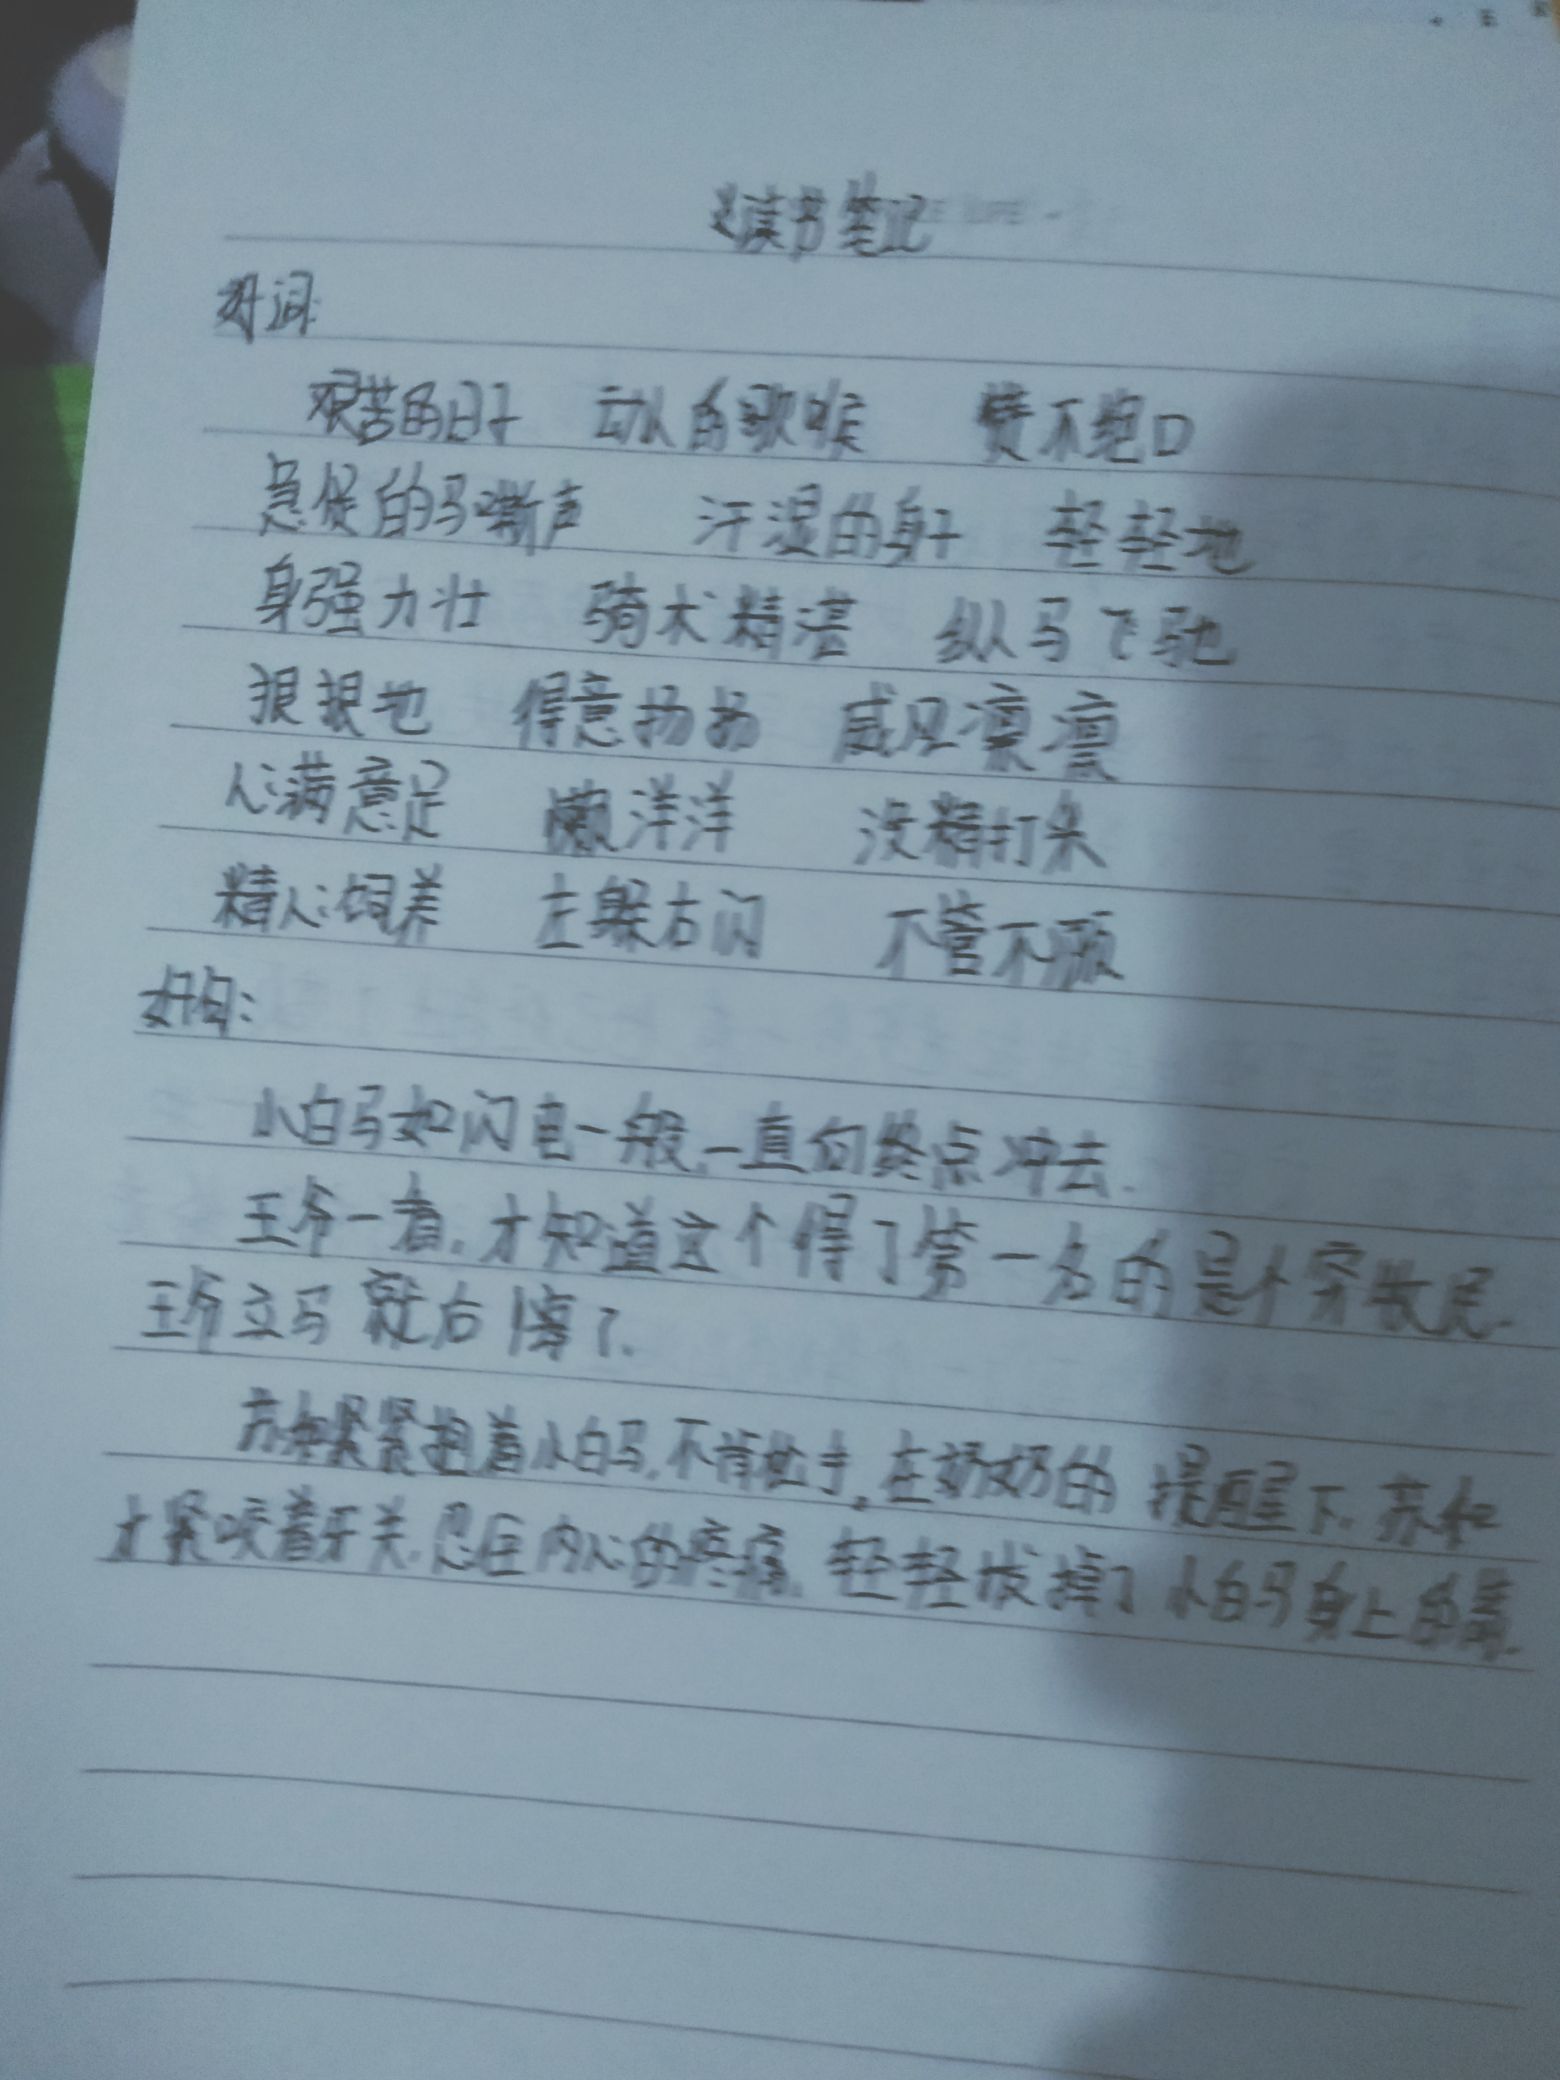 读书笔记
好词:
艰苦的日子 动人的歌喉 赞不绝口
急促的马嘶声 汗湿的身子 轻轻地
身强力壮 骑术精湛 纵马飞驰
狠狠地 得意扬扬 威风凛凛
心满意足 懒洋洋 没精打采
精心饲养 左躲右闪 不管不顾
好句:
小白马如闪电一般,一直向终点冲去.
王爷一看,才知道这个得了第一名的是个穷牧民.
王爷立马就后悔了.
苏和紧紧抱着小白马,不肯松手,在奶奶的提醒下,苏和
才紧咬着牙关,忍住内心的疼痛,轻轻拔掉了小白马身上的箭.